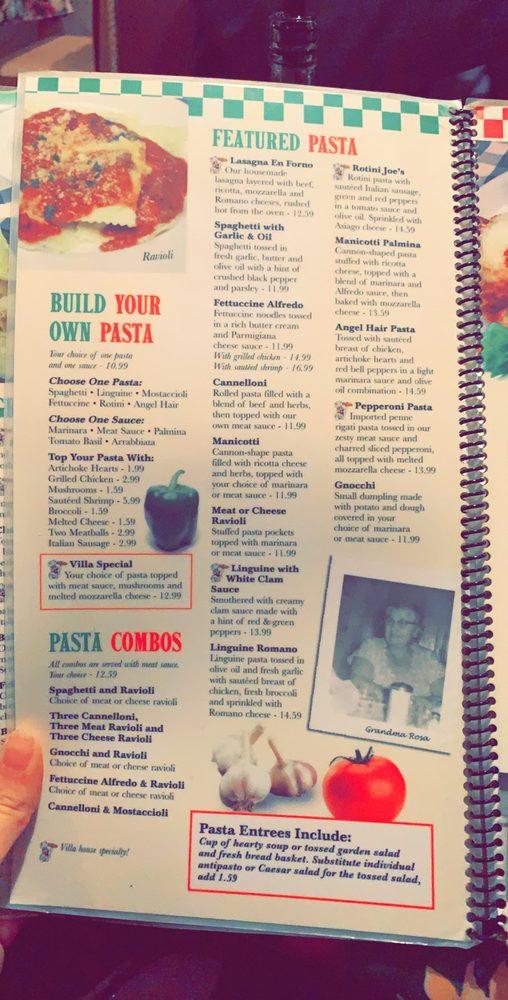 Ravioli
BUILD YOUR
OWN PASTA
Your choice of one pasta
and one sauce - 10.99
Choose One Pasta:
Spaghetti • Linguine • Mostaccioli
Fettuccine • Rotini • Angel Hair
Choose One Sauce:
Marinara • Meat Sauce • Palmina
Tomato Basil • Arrabbiata
Top Your Pasta With:
Artichoke Hearts - 1.99
Grilled Chicken - 2.99
Mushrooms - 1.59
Sautéed Shrimp - 5.99
Broccoli - 1.59
Melted Cheese - 1.59
Two Meatballs - 2.99
Italian Sausage - 2.99
Villa Special
Your choice of pasta topped
with meat sauce, mushrooms and
melted mozzarella cheese - 12.99
PASTA COMBOS
All combos are served with meat sauce.
Your choice - 12.59
Spaghetti and Ravioli
Choice of meat or cheese ravioli
Three Cannelloni,
Three Meat Ravioli and
Three Cheese Ravioli
Gnocchi and Ravioli
Choice of meat or cheese ravioli
Fettuccine Alfredo & Ravioli
Choice of meat or cheese ravioli
Cannelloni & Mostaccioli
Villa house specialty!
FEATURED PASTA
Lasagna En Forno
Our housemade
lasagna layered with beef,
ricotta, mozzarella and
Romano cheeses, rushed
hot from the oven - 12.59
Spaghetti with
Garlic & Oil
Spaghetti tossed in
fresh garlic, butter and
olive oil with a hint of
crushed black pepper
and parsley - 11.99
Fettuccine Alfredo
Fettuccine noodles tossed
in a rich butter cream
and Parmigiana
cheese sauce - 11.99
With grilled chicken - 14.99
With sautéed shrimp - 16.99
Cannelloni
Rolled pasta filled with a
blend of beef and herbs,
then topped with our
own meat sauce - 11.99
Manicotti
Cannon-shape pasta
filled with ricotta cheese
and herbs, topped with
your choice of marinara
or meat sauce - 11.99
Meat or Cheese
Ravioli
Stuffed pasta pockets
topped with marinara
or meat sauce - 11.99
Linguine with
White Clam
Sauce
Smothered with creamy
clam sauce made with
a hint of red & green
peppers - 13.99
Linguine Romano
Linguine pasta tossed in
olive oil and fresh garlic
with sautéed breast of
chicken, fresh broccoli
and sprinkled with
Romano cheese - 14.59
Rotini Joe's
Rotini pasta with
sautéed Italian sausage,
green and red peppers
in a tomato sauce and
olive oil. Sprinkled with
Asiago cheese - 14.59
Manicotti Palmina
Cannon-shaped pasta
stuffed with ricotta
cheese, topped with a
blend of marinara and
Alfredo sauce, then
baked with mozzarella
cheese - 13.59
Angel Hair Pasta
Tossed with sautéed
breast of chicken,
artichoke hearts and
red bell peppers in a light
marinara sauce and olive
oil combination - 14.59
Pepperoni Pasta
Imported penne
rigati pasta tossed in our
zesty meat sauce and
charred sliced pepperoni,
all topped with melted
mozzarella cheese - 13.99
Gnocchi
Small dumpling made
with potato and dough
covered in your
choice of marinara
or meat sauce - 11.99
Grandma Rosa
Pasta Entrees Include:
Cup of hearty soup or tossed garden salad
and fresh bread basket. Substitute individual
antipasto or Caesar salad for the tossed salad,
add 1.59